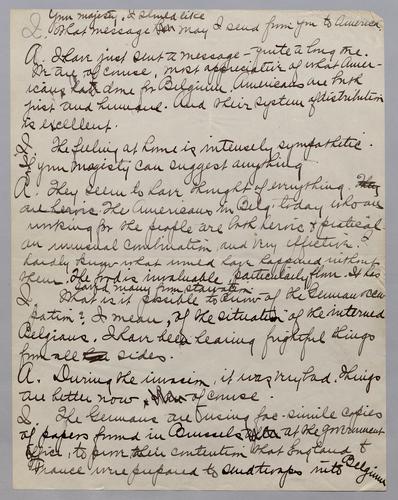 Your majesty, I should like
I. What message may I send from you to America.
A. I have just sent a message – quite a long one.
We are of course, most appreciative of what Amer-
icans have done for Belgium. Americans are both
just and humane. And their system of distribution
is excellent.
The feeling at home is intensely sympathetic.
your majesty can suggest anything
A. They seem to have thought of everything. They
are heroic. The Americans in Belg. today who are
working for the people are both heroic & practical
an unusual combination and very effective. I
hardly know what would have happened without
them. The food is invaluable, particularly flour. It has
saved many from starvation
I. What is it possible to know of the German occu-
pation? I mean, of the situation of the interned
Belgians. I have been hearing frightful things
from all sides.
A. During the invasion, it was very bad. Things
are better now of course.
I. The Germans are using fac-simile copies
of papers found in Brussels at the government
office, to prove their contention that England &
France were prepared to send troops into Belgium